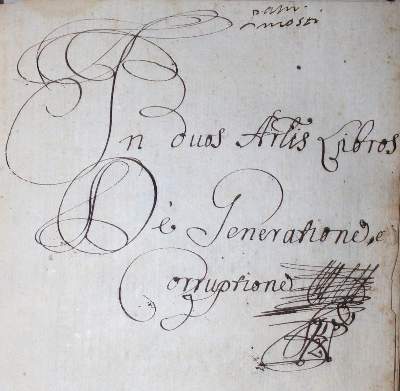 In duos Artis Libros
De Generatione, e
Corruptione